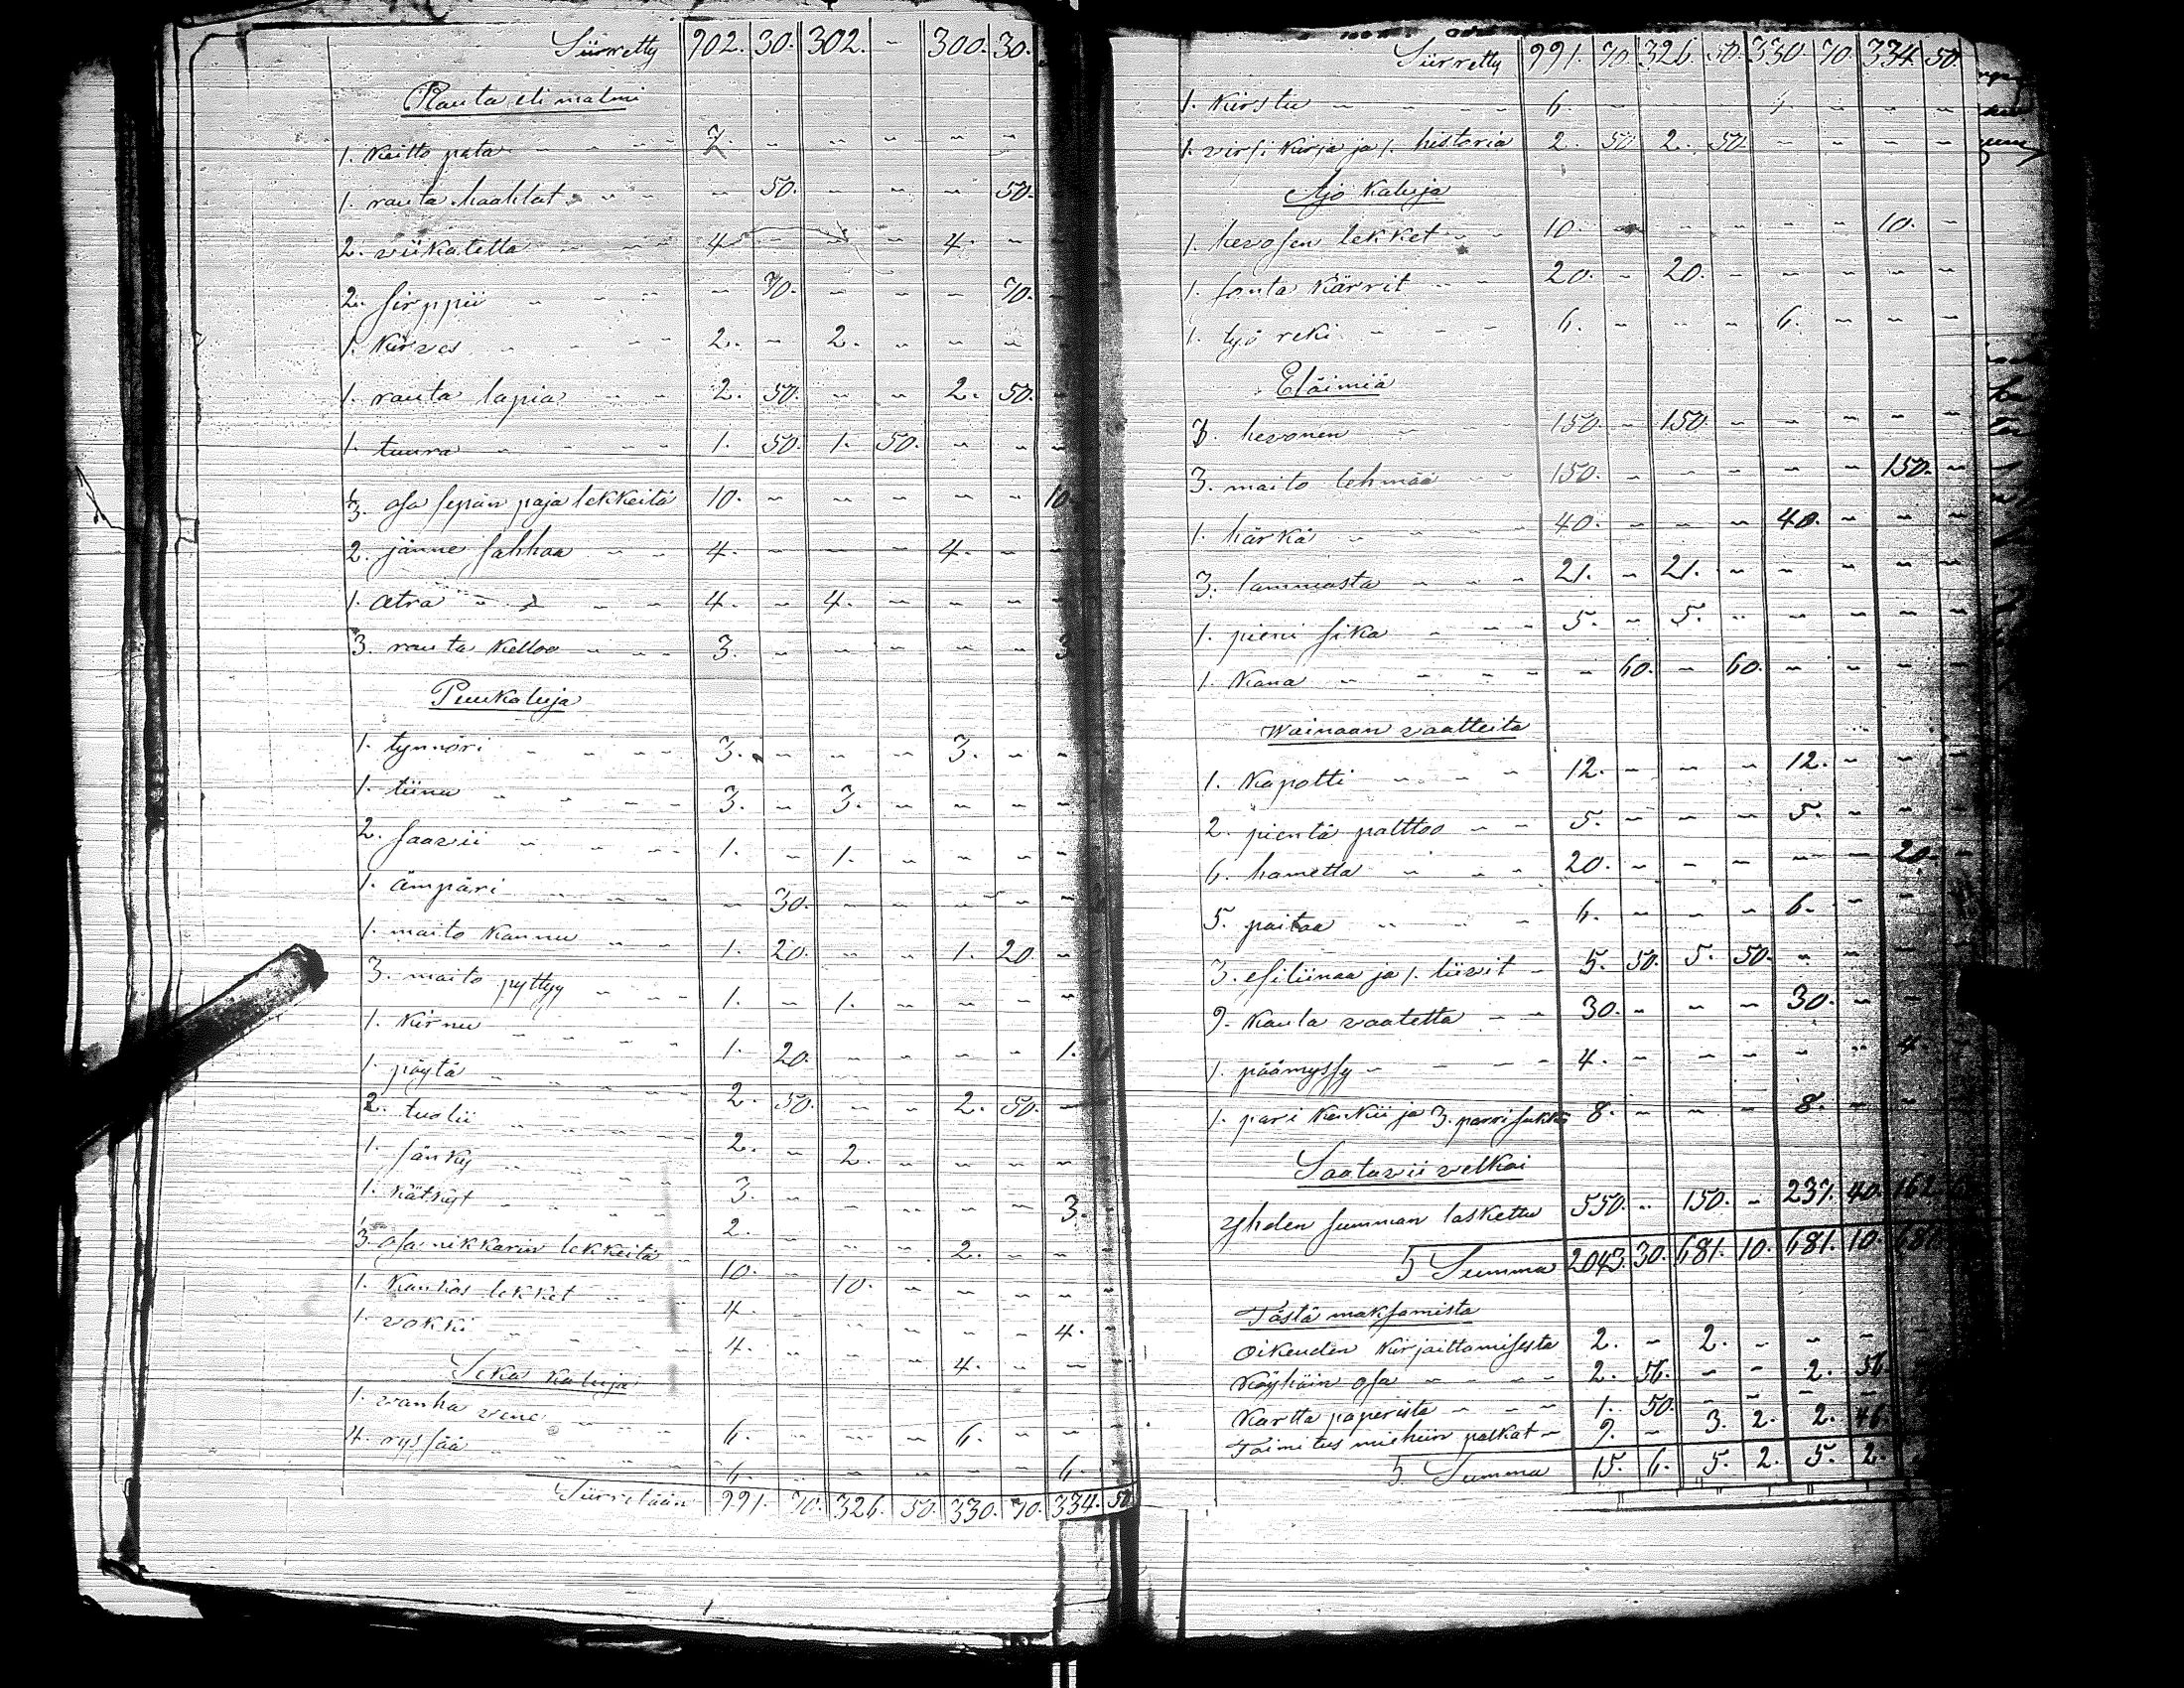 Siirretty 902. 30. 302. - 300. 30.
Rauta eli malmi
1. Keitto pata - - - 7. - - - - -
1. rauta haahlat - - - 50. - - - 50. -
2. viikatetta - - - 4. - - - 4. - -
2. sirppii - - - - 70. - - - 70. -
1. Kirves - - - 2. - 2. - - - -
1. rauta lapia - - 2. 50. - - 2. 50. -
1. tuura - - - 1. 50. 1. 50. - - -
1/3. osa sepän paja lekkeitä 10. - - - - - 10.
2. jänne sahhaa - - 4. - - - 4. - -
1. atra - - - 4. - 4. - - - -
3. rauta Kelloo - - - 3. - - - - - 3
Puukaluja
1. tynnöri - - - - 3. - - - 3. - -
1. tiinu - - - - 3. - 3. - - - -
2. saavii - - - - 1. - 1. - - - -
1. ämpäri - - - - - 30. - - - - -
1. maito Kannu - - 1. 20. - - 1. 20. -
3. maito pyttyy - - - 1. - 1. - - - -
1. Kirnu - - - - 1. 20. - - - - 1.
1. pöytä - - - - 2. 50. - - 2. 50. -
2. tuolii - - - - 2. - 2. - - - -
1. sänky - - - - 3. - - - - - 3.
1. Kätkyt - - - - 2. - - - 2. - -
1/3. osa nikkarin lekkeitä - 10. - 10. - - - - -
1. Kankas lekket - - - 4. - - - - - 4. -
1. vokki - - - - 4. - - - 4. - -
Seka kaluja
1. vanha vene - - - 6. - - - 6. - - -
4. ryssää - - - - 6. - - - - - 6.
Siirretään 991. 70. 326. 50. 330. 70. 334. 50
Siirretty 991. 70. 326. 50. 330. 70. 334. 50.
1. Kirstu - - - - 6. - - - 6. - - -
1. virsi Kirja ja 1. historia 2. 50 2. 50. - - - -
Ajo Kaluja
1. hevosen lekket - - 10. - - - - - 10. -
1. souta Kärrit - - 20. - 20. - - - - -
1. työ reki - - - 6. - - - 6. - - -
Eläimiä
1. hevonen - - - 150. - 150. - - - - -
3. maito lehmää - - 150. - - - - - 150. -
1. härkä - - - 40. - - - 40. - - -
3. lammasta - - - 21. - 21. - - - - -
1. pieni sika - - - 5. - 5. - - - - -
1. Kana - - - - - 60. - 60. - - - -
Wainaan vaatteita
1. Kapotti - - - 12. - - - 12. - - -
2. pientä palttoo - - 5. - - - 5. - - -
6. hametta - - - 20. - - - - - 20. -
5. paitaa - - - 6. - - - 6. - -
3. esiliinaa ja 1. liivit - 5. 50. 5. 50. - - -
9. Kaula vaatetta - - 30. - - - 30. - -
1. päämyssy - - - - 4. - - - - - 4.
1. pari Kenkii ja 3. parri sukkii 8. - - - 8. - -
Saatavii velkoi
Yhden summan laskettu 550. - 150. - 237. 40. 162.
S Summa 2043. 30. 681. 10. 681. 10. 681
Tästä maksamista
Oikeuden Kirjaittamisesta 2. - 2. - - - -
Köyhäin osa - - - - 2. 56. - - 2. 56
Kartta paperista - - - 1. 50. - - - -
Toimitus miehiin palkat - 9. - 3. 2. 2. 46.
S Summa 15. 6. 5. 2. 5. 2.